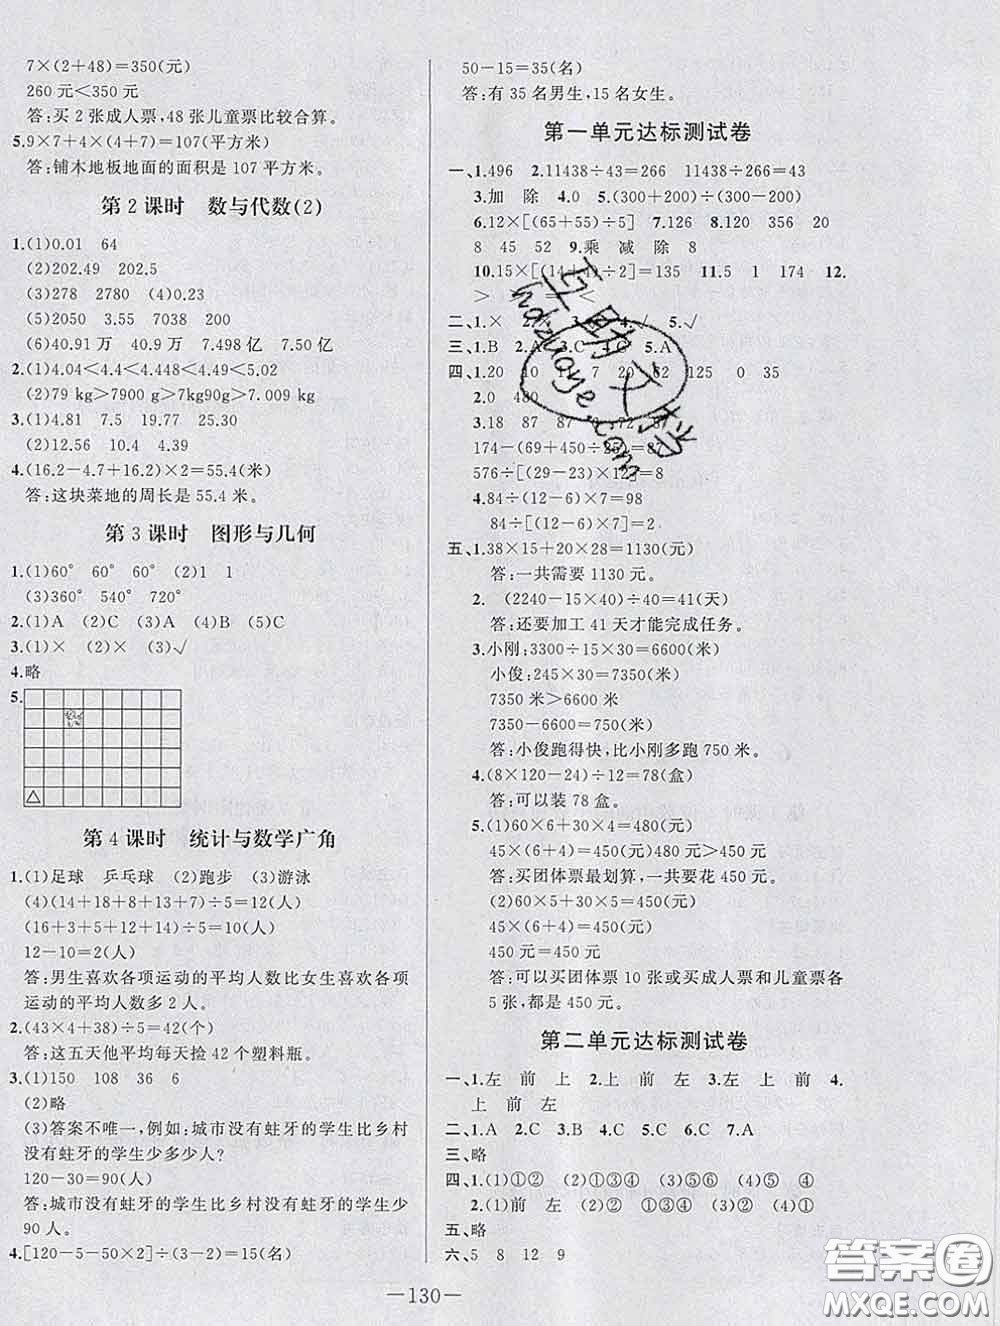 7×(2+48)=350(元)
260元<350元
答:买2张成人票,48张儿童票比较合算。
5.9×7+4×(4+7)=107(平方米)
答:铺木地板地面的面积是107平方米。
第2课时 数与代数(2)
1.(1)0.01 64
(2)202.49 202.5
(3)278 2780 (4)0.23
(5)2050 3.55 7038 200
(6)40.91万 40.9万 7.498亿 7.50亿
2.(1)4.04<4.4<4.448<4.49<5.02
(2)79 kg>7900 g>7kg90g>7.009 kg
3.(1)4.81 7.5 19.77 25.30
(2)12.56 10.4 4.39
4.(16.2-4.7+16.2)×2=55.4(米)
答:这块菜地的周长是55.4米。
第3课时 图形与几何
1.(1)60° 60° 60° (2)1 1
(3)360° 540° 720°
2.(1)A (2)C (3)A (4)B (5)C
3.(1)× (2)× (3)√
4.略
5.
第4课时 统计与数学广角
1.(1)足球 乒乓球 (2)跑步 (3)游泳
(4)(14+18+8+13+7)÷5=12(人)
(16+3+5+12+14)÷5=10(人)
12-10=2(人)
答:男生喜欢各项运动的平均人数比女生喜欢各项
运动的平均人数多2人。
2.(43×4+38)÷5=42(个)
答:这五天他平均每天捡42个塑料瓶。
3.(1)150 108 36 6
(2)略
(3)答案不唯一,例如:城市没有蛀牙的学生比乡村
没有蛀牙的学生少多少人?
120-30=90(人)
答:城市没有蛀牙的学生比乡村没有蛀牙的学生少
90人。
4.[120-5-50×2]÷(3-2)=15(名)
50-15=35(名)
答:有35名男生,15名女生。
第一单元达标测试卷
一、1.496 2.11438÷43=266 11438÷266=43
3.加 除 4.0 5.(300+200)÷(300-200)
6.12×[(65+55)÷5] 7.126 8.120 356 20
8 45 52 9.乘 减 除 8
10.15×[(14+4)÷2]=135 11.5 1 174 12.
二、1.× 5.√
三、1.B 2.A 3.C 4.C 5.A
四、1.20 10 7 20 62 125 0 35
2.0 480
3.18 87 87 72 87
174-(69+450÷25)=87
576÷[(29-23)×12]=8
4.84÷(12-6)×7=98
84÷[(12-6)×7]=2
五、1.38×15+20×28=1130(元)
答:一共需要1130元。
2.(2240-15×40)÷40=41(天)
答:还要加工41天才能完成任务。
3.小刚:3300÷15×30=6600(米)
小俊:245×30=7350(米)
7350米>6600米
7350-6600=750(米)
答:小俊跑得快,比小刚多跑750米。
4.(8×120-24)÷12=78(盒)
答:可以装78盒。
5.(1)60×6+30×4=480(元)
45×(6+4)=450(元)480元>450元
答:买团体票最划算,一共要花450元。
(2)60×5+30×5=450(元)
45×(6+4)=450(元)
450元=450元
答:可以买团体票10张或买成人票和儿童票各
5张,都是450元。
第二单元达标测试卷
一、1.左 前 上 2.上 前 左 3.左 上 前 4.
上 前 左
二、1.A 2.C 3.B 4.A 5.C 6.C 7.A
三、略
四、1.(1)①② (2)①③④ (3)②④⑤ ⑤ ④
2.(1)前 左 (2)①③④ (3)②④ (4)①
五、略
六、5 8 12 9
—130—
互助文档
hdzuoye.com
答案圈
MXQE.COM